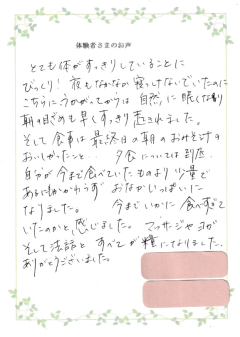 体験者さまのお声
とても体がすっきりしていることに
びっくり! 夜もなかなか寝つけないでいたのに
こちらにうかがってからは 自然に眠くなり
朝の目ざめも早くすっきり起きれました。
そして食事は最終日の朝のおみそ汁の
おいしかったこと… 夕食については到底
自分が今まで食べていたものより少量で
あるにもかかわらず おなかいっぱいに
なりました。 今までいかに食べすぎて
いたのかと感じました。 マッサージやヨガ
そして法話と すべてが糧になりました。
ありがとうございました。